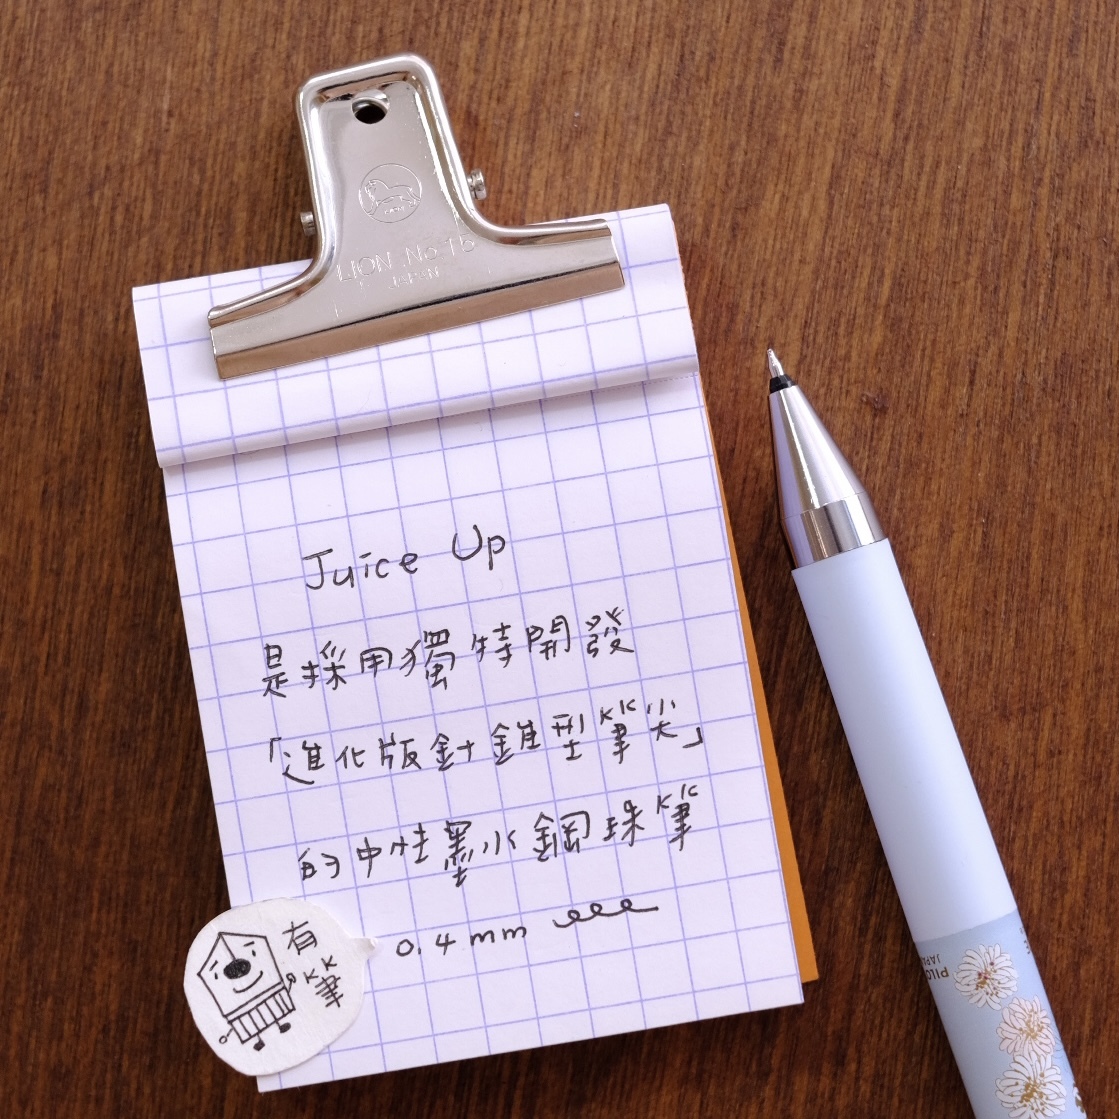 LION No-75
JAPAN
Juice Up
是採用獨特開發
「進化版針錐型筆尖」
的中性墨水鋼珠筆
0.4 mm
有
筆
PILO
JAPA